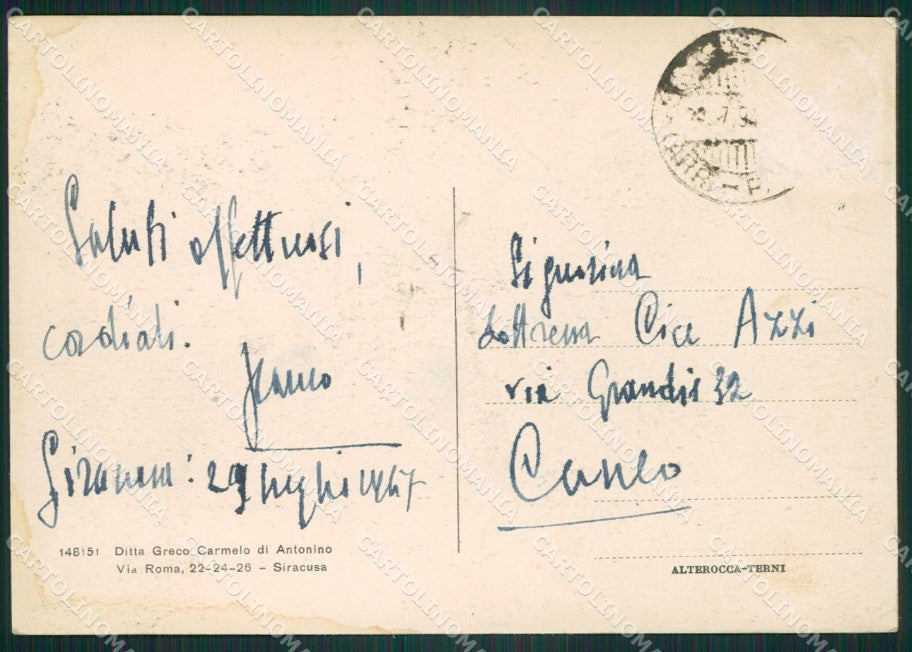 Saluti affettuosi,
cordiali.
Franco
Siracusa: 29 luglio 1957
148151 Ditta Greco Carmelo di Antonino
Via Roma, 22-24-26 - Siracusa
Signorina
dottressa Cice Azzi
via Grandis 32
Cuneo
ALTEROCCA-TERNI
CARTOLINOMANIA